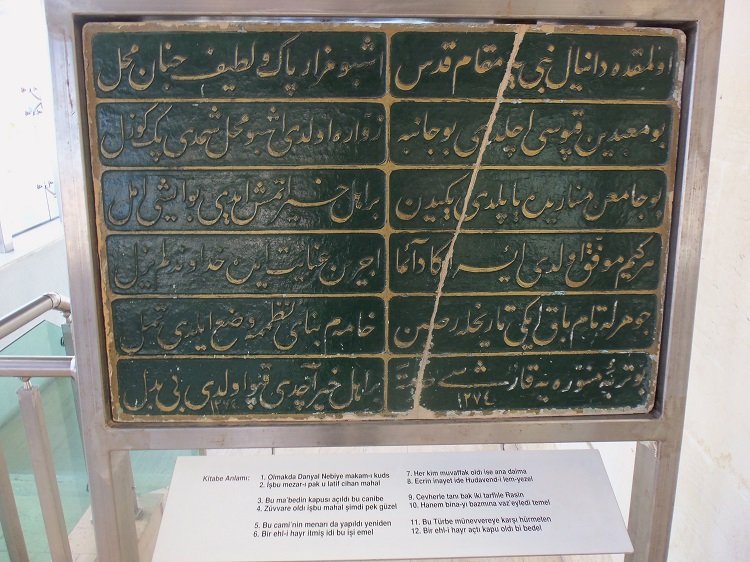 اولمقده دانیال نبی یه مقام قدس
اشبو مزار پاك و لطیف جنان محل
بو معبدین قپوسی آچلدی بو جانبه
زواره اولدی اشبو محل شمدی پك كوزل
بو جامعن منارین یاپلدی یكیدن
بر اهل خیر ایتمش ایدی بو ایشی امل
هر كیم موفق اولدی ایسه اكا دائما
اجرین عنایت ایده خداوند لم یزل
جوهرله تام باق ایكی تاریخله رصین
خادم بنای نظممه وضع ایلدی تمل
بو تربۀ منوره یه قارشی ١٢٧٤
بر اهل خیر آچدی قپو اولدی بی بدل
Kitabe Anlamı:
1. Olmakda Danyal Nebiye makam-ı kuds
2. İşbu mezar-ı pak u latif cihan mahal
3. Bu ma'bedin kapusı açıldı bu canibe
4. Züvvare oldı işbu mahal şimdi pek güzel
5. Bu cami'nin menarı da yapıldı yeniden
6. Bir ehl-i hayr itmiş idi bu işi emel
7. Her kim muvaffak oldı ise ana daima
8. Ecrin inayet ide Hudavend-i lem-yezel
9. Cevherle tanı bak iki tarihle Rasin
10. Hanem bina-yı bazmına vaz'eyledi temel
11. Bu Türbe münevvereye karşı hürmeten
12. Bir ehl-i hayr açtı kapu oldı bi bedel